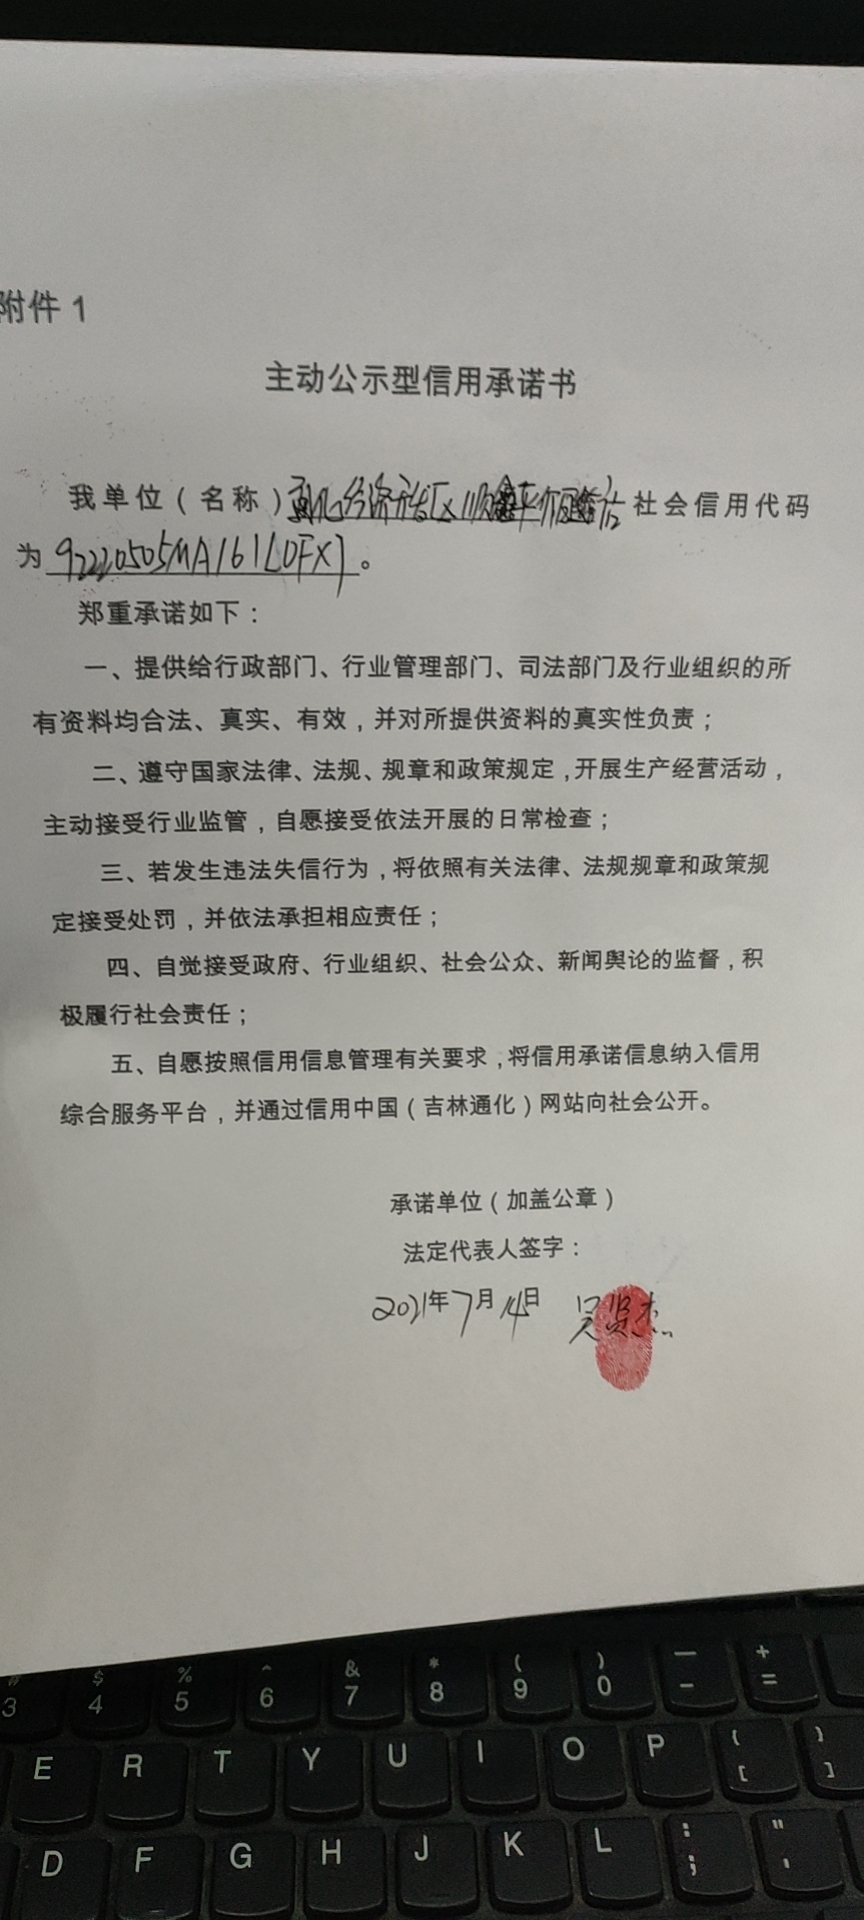 附件 1
主动公示型信用承诺书
我单位（名称）通化经济开发区顺鑫平价超市社会信用代码
为 92220505MA161L0FX7 。
郑重承诺如下：
一、提供给行政部门、行业管理部门、司法部门及行业组织的所
有资料均合法、真实、有效，并对所提供资料的真实性负责；
二、遵守国家法律、法规、规章和政策规定，开展生产经营活动，
主动接受行业监管，自愿接受依法开展的日常检查；
三、若发生违法失信行为，将依照有关法律、法规规章和政策规
定接受处罚，并依法承担相应责任；
四、自觉接受政府、行业组织、社会公众、新闻舆论的监督，积
极履行社会责任；
五、自愿按照信用信息管理有关要求，将信用承诺信息纳入信用
综合服务平台，并通过信用中国（吉林通化）网站向社会公开。
承诺单位（加盖公章）
法定代表人签字：
2021年7月14日 吴贤杰
# $ % ^ & * ( ) — +
3 4 5 6 7 8 9 0 - =
E R T Y U I O P { }
[ ]
D F G H J K L : "
; '